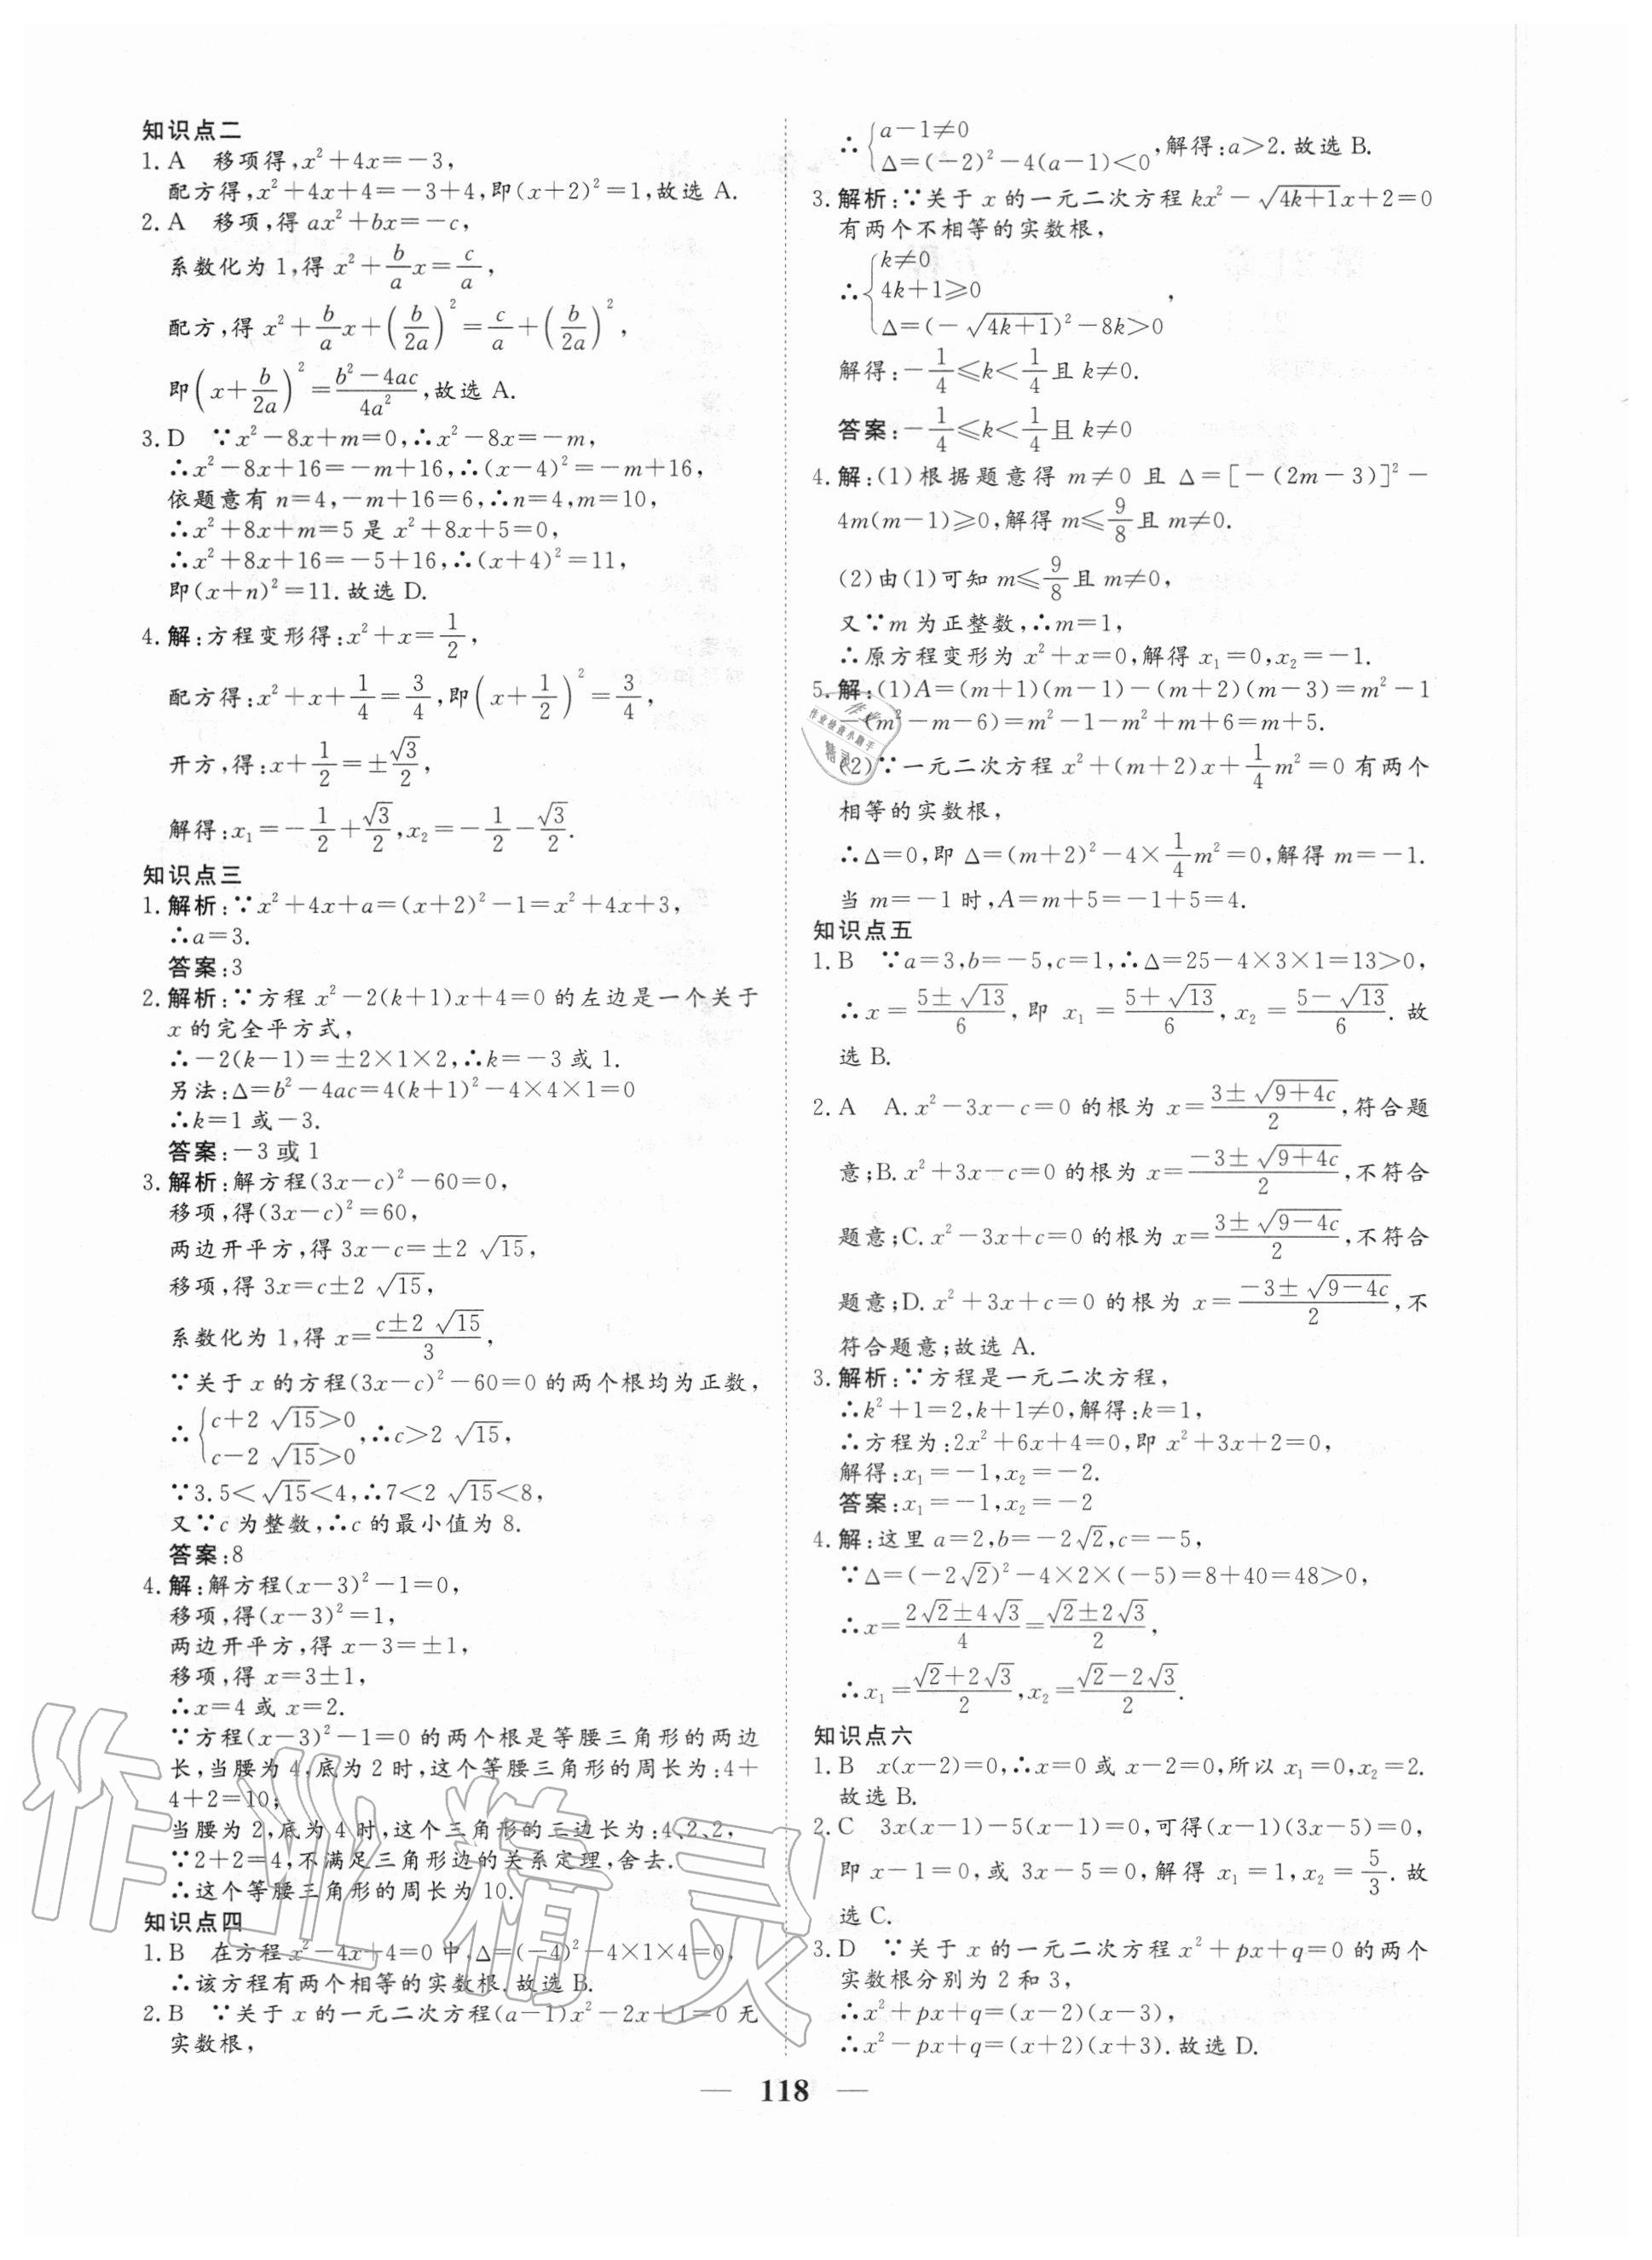 知识点二
1. A　移项得,x²+4x=-3,
配方得,x²+4x+4=-3+4,即(x+2)²=1,故选 A.
2. A　移项,得 ax²+bx=-c,
系数化为 1,得 x²+\frac{b}{a}x=\frac{c}{a},
配方,得 x²+\frac{b}{a}x+(\frac{b}{2a})²=\frac{c}{a}+(\frac{b}{2a})²,
即(x+\frac{b}{2a})²=\frac{b²-4ac}{4a²},故选 A.
3. D　∵x²-8x+m=0,∴x²-8x=-m,
∴x²-8x+16=-m+16,∴(x-4)²=-m+16,
依题意有 n=4,-m+16=6,∴n=4,m=10,
∴x²+8x+m=5 是 x²+8x+5=0,
∴x²+8x+16=-5+16,∴(x+4)²=11,
即(x+n)²=11. 故选 D.
4. 解:方程变形得:x²+x=\frac{1}{2},
配方得:x²+x+\frac{1}{4}=\frac{3}{4},即(x+\frac{1}{2})²=\frac{3}{4},
开方,得:x+\frac{1}{2}=±\frac{√3}{2},
解得:x₁=-\frac{1}{2}+\frac{√3}{2},x₂=-\frac{1}{2}-\frac{√3}{2}.
知识点三
1. 解析:∵x²+4x+a=(x+2)²-1=x²+4x+3,
∴a=3.
答案:3
2. 解析:∵方程 x²-2(k+1)x+4=0 的左边是一个关于
x 的完全平方式,
∴-2(k-1)=±2×1×2,∴k=-3 或 1.
另法:Δ=b²-4ac=4(k+1)²-4×4×1=0
∴k=1 或-3.
答案:-3 或 1
3. 解析:解方程(3x-c)²-60=0,
移项,得(3x-c)²=60,
两边开平方,得 3x-c=±2√15,
移项,得 3x=c±2√15,
系数化为 1,得 x=\frac{c±2√15}{3},
∵关于 x 的方程(3x-c)²-60=0 的两个根均为正数,
∴{c+2√15>0
c-2√15>0,∴c>2√15,
∵3.5<√15<4,∴7<2√15<8,
又∵c 为整数,∴c 的最小值为 8.
答案:8
4. 解:解方程(x-3)²-1=0,
移项,得(x-3)²=1,
两边开平方,得 x-3=±1,
移项,得 x=3±1,
∴x=4 或 x=2.
∵方程(x-3)²-1=0 的两个根是等腰三角形的两边
长,当腰为 4,底为 2 时,这个等腰三角形的周长为:4+
4+2=10;
当腰为 2,底为 4 时,这个三角形的三边长为:4、2、2,
∵2+2=4,不满足三角形边的关系定理,舍去.
∴这个等腰三角形的周长为 10.
知识点四
1. B　在方程 x²-4x+4=0 中,Δ=(-4)²-4×1×4=0,
∴该方程有两个相等的实数根. 故选 B.
2. B　∵关于 x 的一元二次方程(a-1)x²-2x+1=0 无
实数根,
∴{a-1≠0
Δ=(-2)²-4(a-1)<0,解得:a>2. 故选 B.
3. 解析:∵关于 x 的一元二次方程 kx²-√(4k+1)x+2=0
有两个不相等的实数根,
∴{k≠0
4k+1≥0
Δ=(-√(4k+1))²-8k>0,
解得:-\frac{1}{4}≤k<\frac{1}{4}且 k≠0.
答案:-\frac{1}{4}≤k<\frac{1}{4}且 k≠0
4. 解:(1)根据题意得 m≠0 且 Δ=[-(2m-3)]²-
4m(m-1)≥0,解得 m≤\frac{9}{8}且 m≠0.
(2)由(1)可知 m≤\frac{9}{8}且 m≠0,
又∵m 为正整数,∴m=1,
∴原方程变形为 x²+x=0,解得 x₁=0,x₂=-1.
5. 解:(1)A=(m+1)(m-1)-(m+2)(m-3)=m²-1
-(m²-m-6)=m²-1-m²+m+6=m+5.
(2)∵一元二次方程 x²+(m+2)x+\frac{1}{4}m²=0 有两个
相等的实数根,
∴Δ=0,即 Δ=(m+2)²-4×\frac{1}{4}m²=0,解得 m=-1.
当 m=-1 时,A=m+5=-1+5=4.
知识点五
1. B　∵a=3,b=-5,c=1,∴Δ=25-4×3×1=13>0,
∴x=\frac{5±√13}{6},即 x₁=\frac{5+√13}{6},x₂=\frac{5-√13}{6}. 故
选 B.
2. A　A. x²-3x-c=0 的根为 x=\frac{3±√(9+4c)}{2},符合题
意;B. x²+3x-c=0 的根为 x=\frac{-3±√(9+4c)}{2},不符合
题意;C. x²-3x+c=0 的根为 x=\frac{3±√(9-4c)}{2},不符合
题意;D. x²+3x+c=0 的根为 x=\frac{-3±√(9-4c)}{2},不
符合题意;故选 A.
3. 解析:∵方程是一元二次方程,
∴k²+1=2,k+1≠0,解得:k=1,
∴方程为:2x²+6x+4=0,即 x²+3x+2=0,
解得:x₁=-1,x₂=-2.
答案:x₁=-1,x₂=-2
4. 解:这里 a=2,b=-2√2,c=-5,
∵Δ=(-2√2)²-4×2×(-5)=8+40=48>0,
∴x=\frac{2√2±4√3}{4}=\frac{√2±2√3}{2},
∴x₁=\frac{√2+2√3}{2},x₂=\frac{√2-2√3}{2}.
知识点六
1. B　x(x-2)=0,∴x=0 或 x-2=0,所以 x₁=0,x₂=2.
故选 B.
2. C　3x(x-1)-5(x-1)=0,可得(x-1)(3x-5)=0,
即 x-1=0,或 3x-5=0,解得 x₁=1,x₂=\frac{5}{3}. 故
选 C.
3. D　∵关于 x 的一元二次方程 x²+px+q=0 的两个
实数根分别为 2 和 3,
∴x²+px+q=(x-2)(x-3),
∴x²-px+q=(x+2)(x+3). 故选 D.
— 118 —
作业精灵
作业
作业检查小助手
精灵